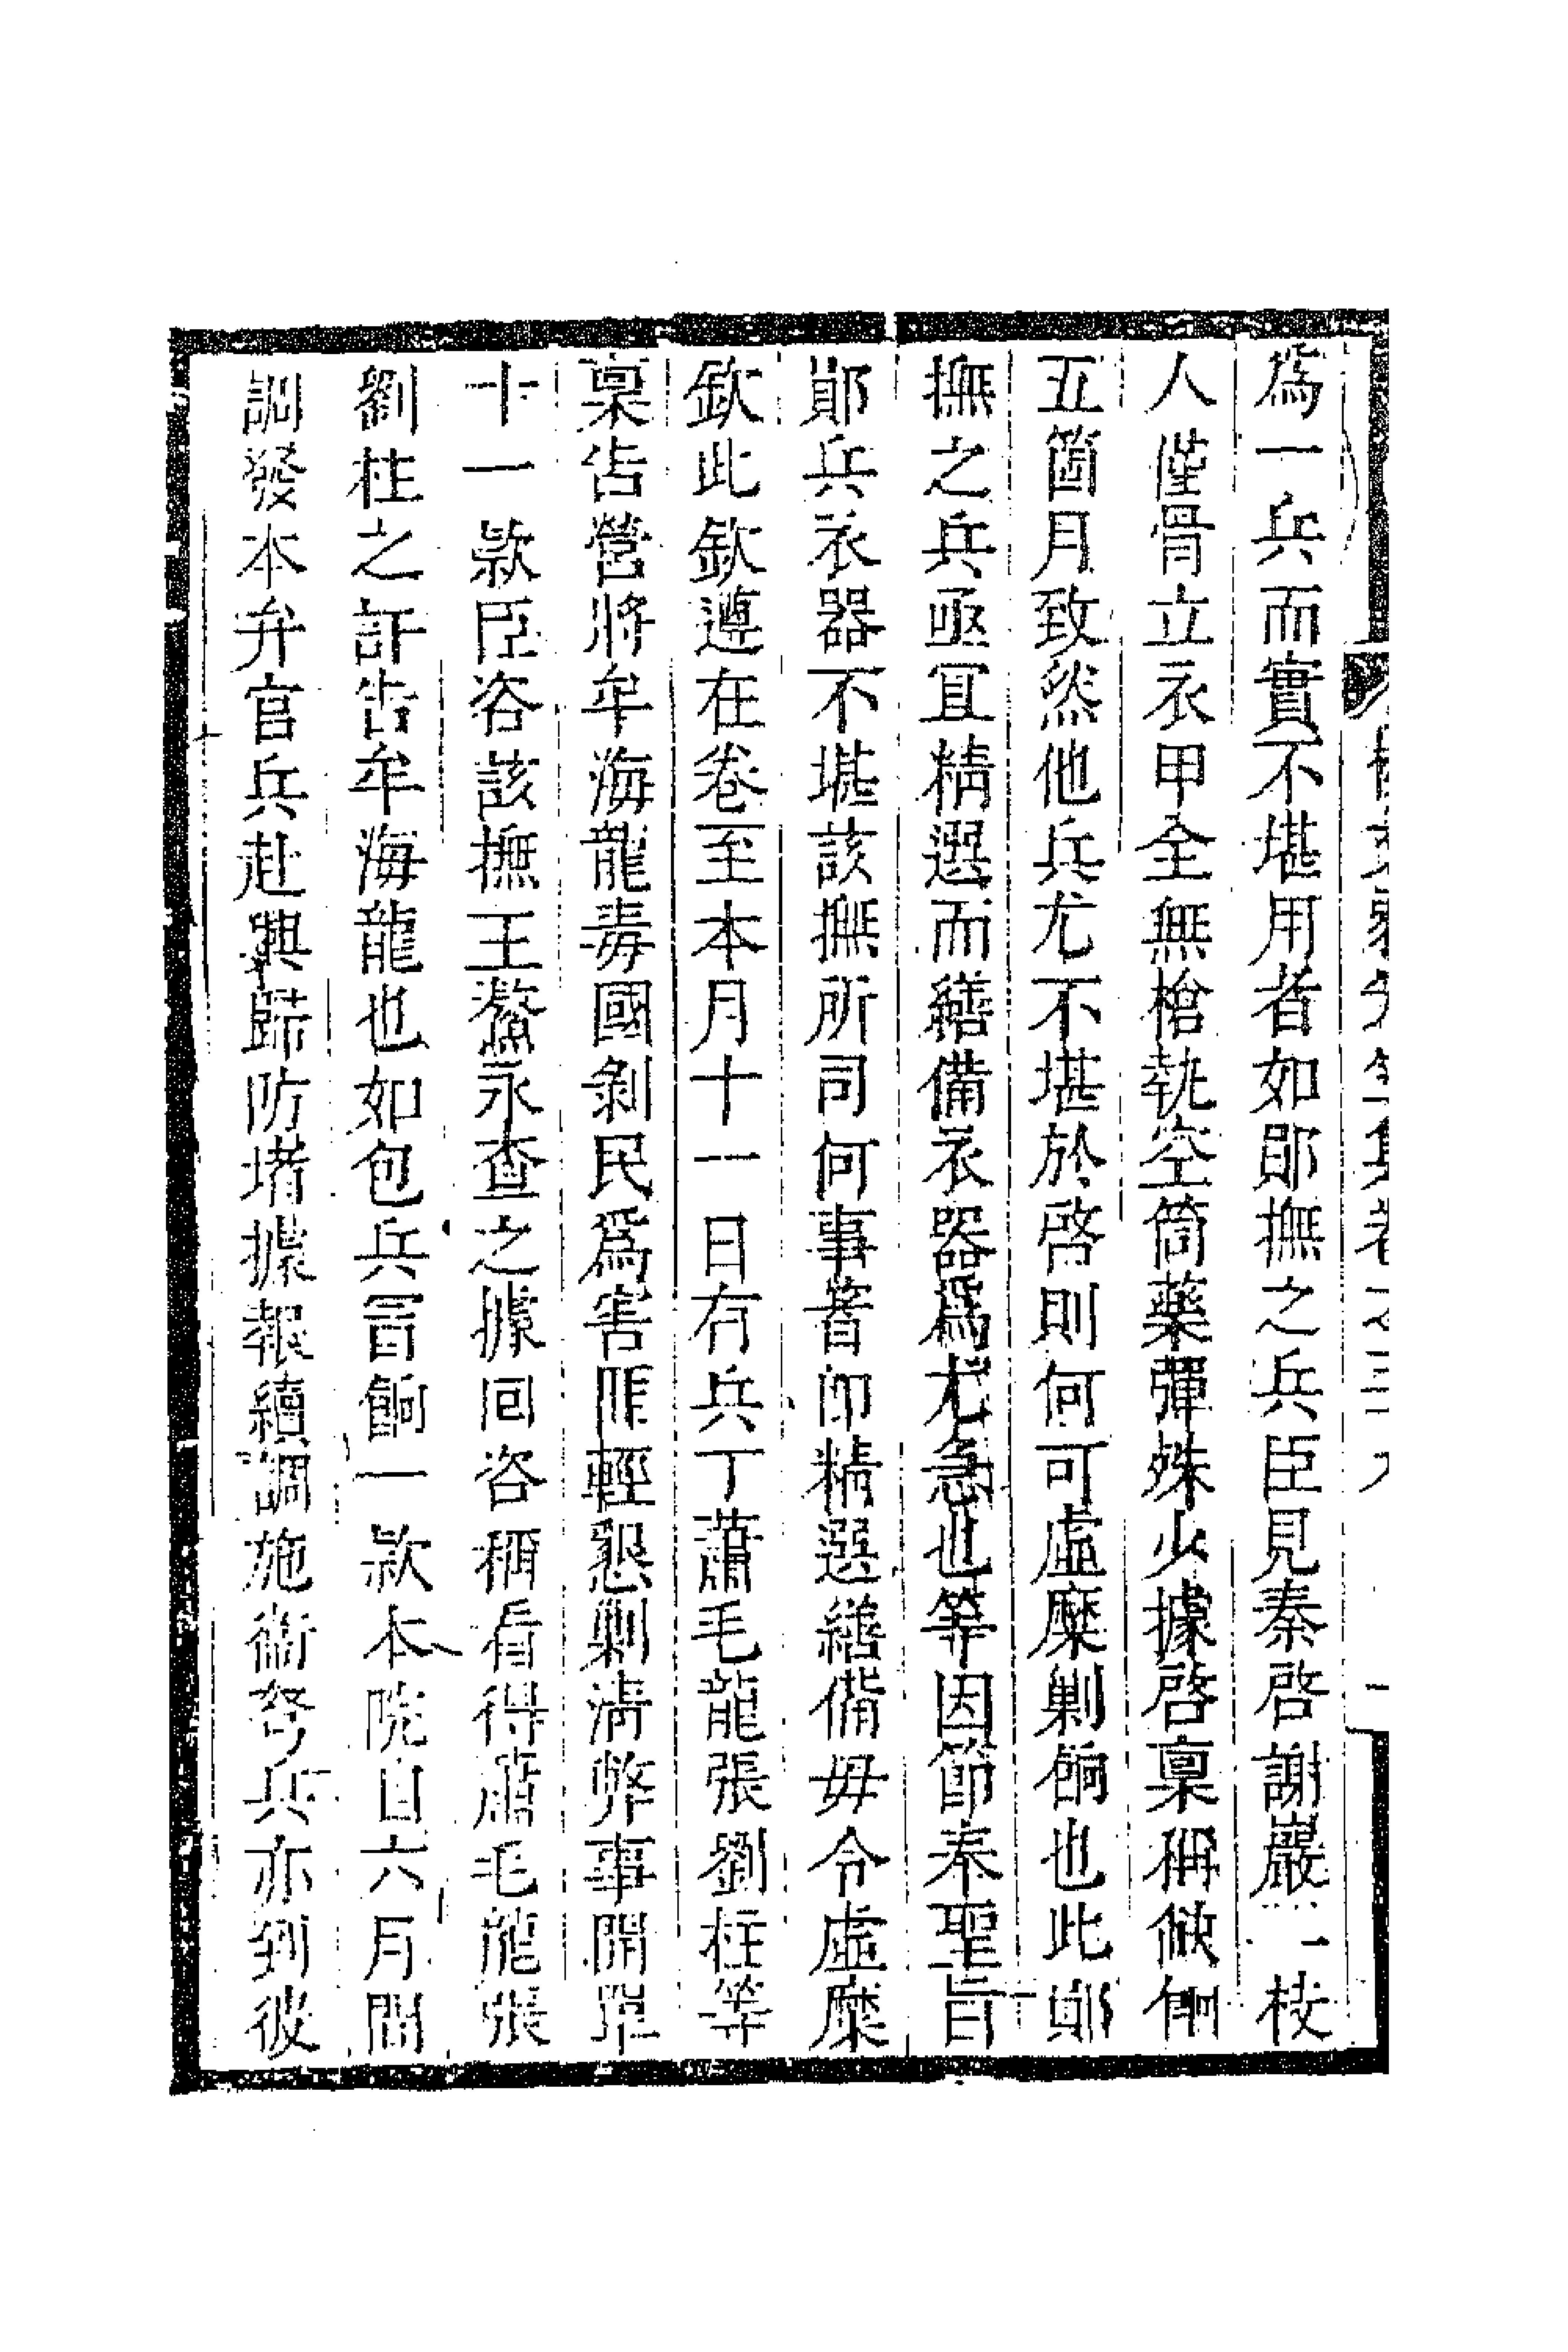 爲一兵而實不堪用者如鄖撫之兵臣見秦啓謝巖一枝
人僅骨立衣甲全無槍執空筒藥彈殊少據啓稟稱做餉
五箇月致然他兵尤不堪於啓則何可虛糜剿餉也此鄖
撫之兵亟宜精選而繕備衣器爲尤急也等因節奉聖旨
鄖兵衣器不堪該撫所司何事著卽精選繕備毋令虛糜
欽此欽遵在卷至本月十一日有兵丁蕭毛龍張劉柱等
稟告營將牟海龍毒國剝民爲害匪輕懇剿淸弊事開單
十一款臣咨該撫王鰲永查之據回咨稱看得蕭毛龍張
劉柱之訐告牟海龍也如包兵冒餉一款本院自六月間
調發本弁官兵赴興歸防堵據報續調施衞弩兵亦到彼